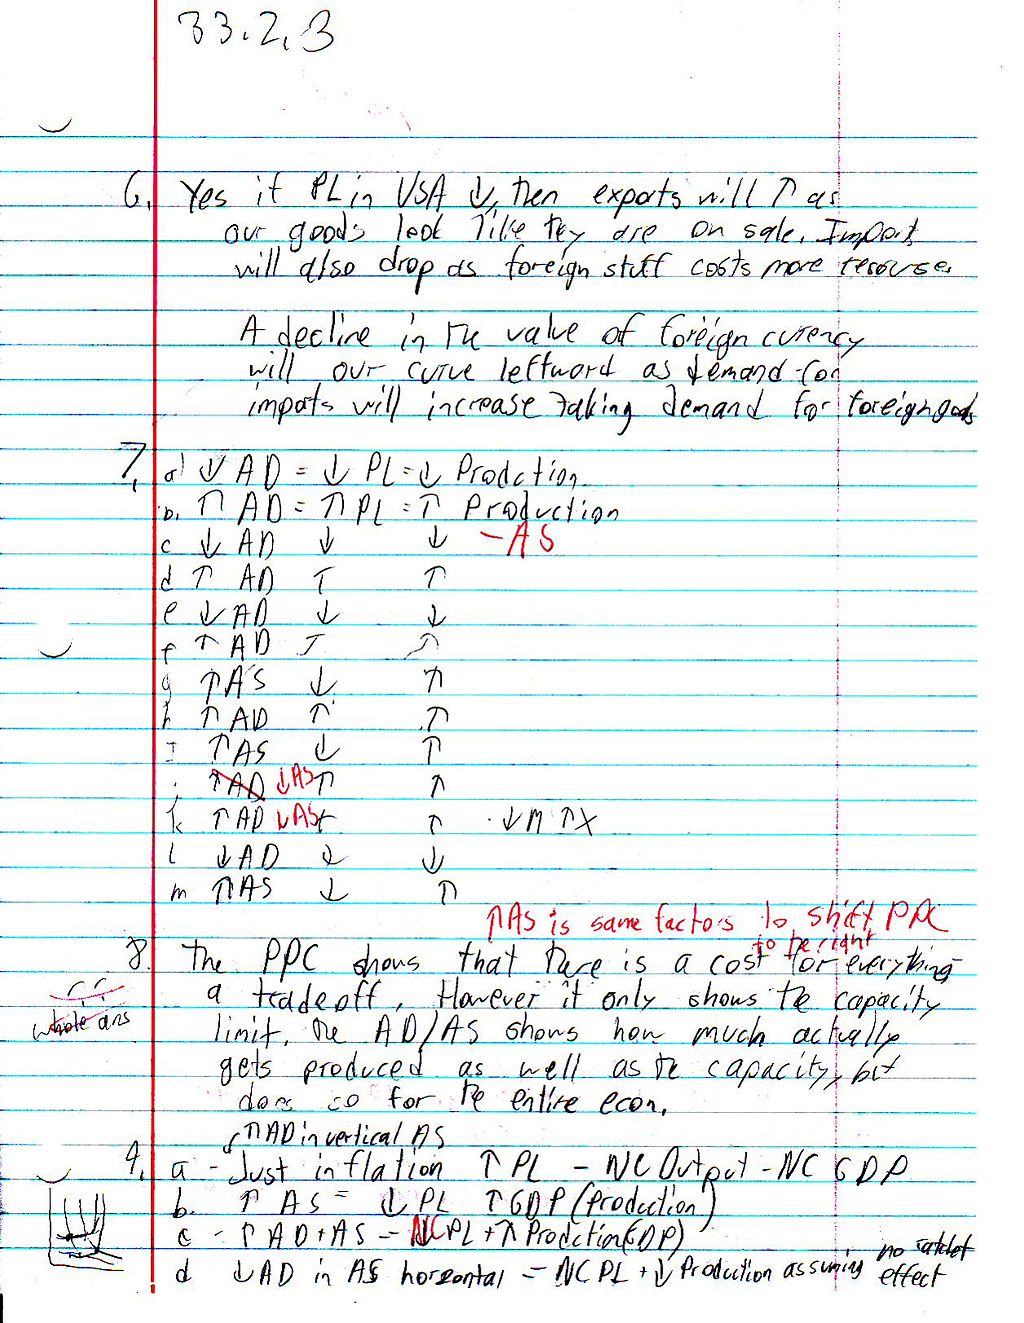 33.2.3
6. Yes if PL in USA ↓, then exports will ↑ as
our goods look like they are on sale. Imports
will also drop as foreign stuff costs more
A decline in the value of foreign curency
will our curve leftward as demand for
imports will increase taking demand for foreign goods
7. a) ↓ AD = ↓ PL = ↓ Prodction
b. ↑ AD = ↑ PL = ↑ Production
c ↓ AD ↓ ↓ - AS
d ↑ AD ↑ ↑
e ↓ AD ↓ ↓
f ↑ AD ↑ ↑
g ↑ AS ↓ ↑
h ↑ AD ↑ ↑
I ↑ AS ↓ ↑
j ↑AD ↓AS ↑ ↑
k ↑ AD ↓AS ↑ ↑ ↓M ↑X
l ↓ AD ↓ ↓
m ↑ AS ↓ ↑
↑AS is same factors to shift PPC
to the right
8. The PPC shows that there is a cost for everything
a tradeoff. However it only shows the capacity
whole ans
limit, the AD/AS shows how much actually
gets produced as well as the capacity, but
does so for the entire econ.
↑AD in vertical AS
9. a - Just inflation ↑ PL - NC Output - NC GDP
b. ↑ AS = ↓ PL ↑ GDP (production)
c - ↑ AD + AS - NC PL + ↑ Prodction (GDP)
d ↓ AD in AS horezontal = NC PL + ↓ Production assuming no ratchet
effect